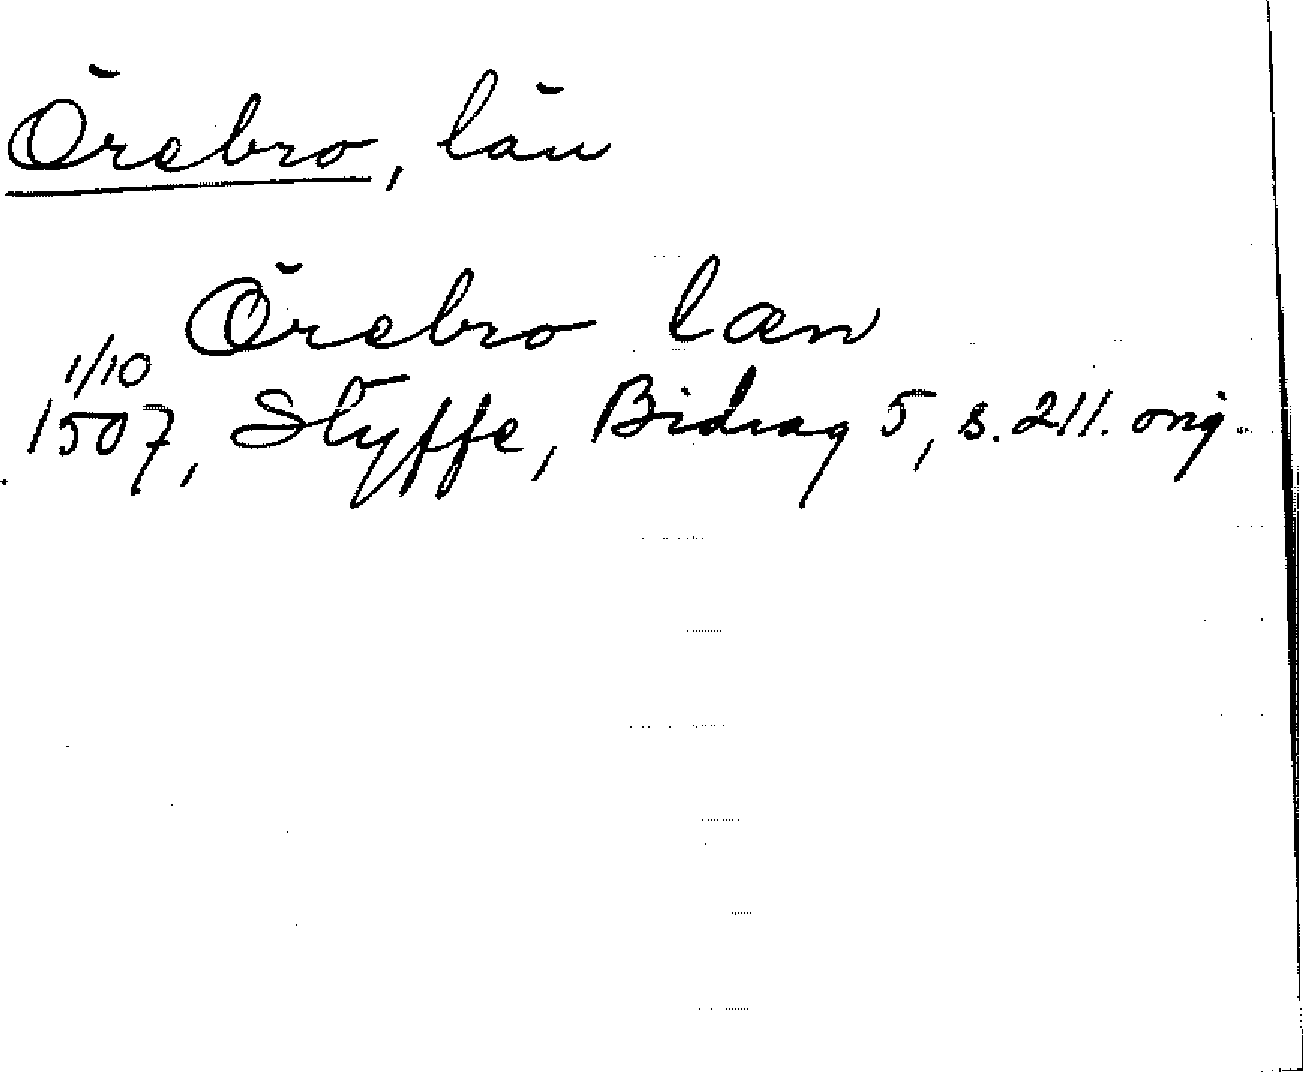 Örebro, län
Örebro læn
1/10
1507, Styffe, Bidrag 5, s. 211. orig.